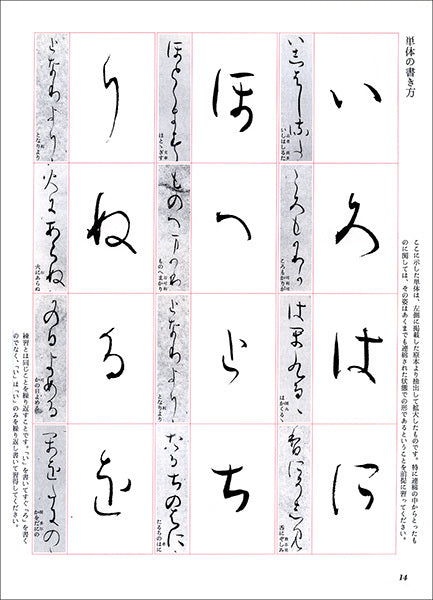 単体の書き方
ここに示した単体は、左側に掲載した原本より抽出して拡大したものです。特に連綿の中からとったも
のに関しては、その姿はあくまでも連綿された状態での形であるということを前提に習ってください。
い
いしはしるた
ろ
ころもかりが
は
はかるゝ
に
香にぞしみ
ほ
ほとゝぎす
へ
ものへまかり
と
となりより
ち
たるちのはに
り
となりより
ぬ
火にあらぬ
る
かの日よめる
を
かをだにの
練習とは同じことを繰り返すことです。「い」を書いてすぐ「ろ」を書く
のでなく、「い」は「い」のみを繰り返し書いて習得してください。
14